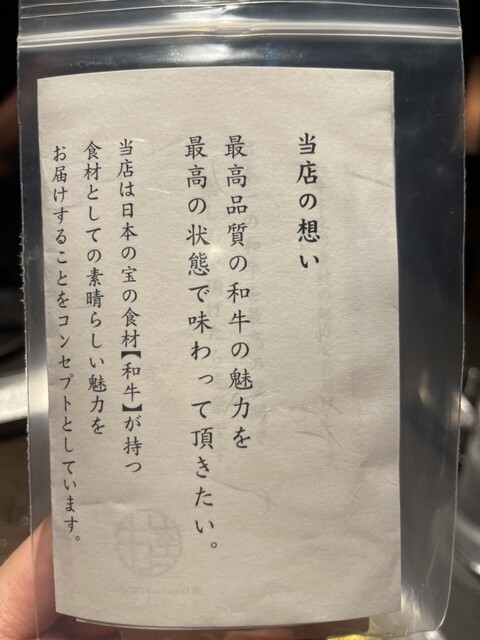 当店の想い
最高品質の和牛の魅力を
最高の状態で味わって頂きたい。
当店は日本の宝の食材【和牛】が持つ
食材としての素晴らしい魅力を
お届けすることをコンセプトとしています。